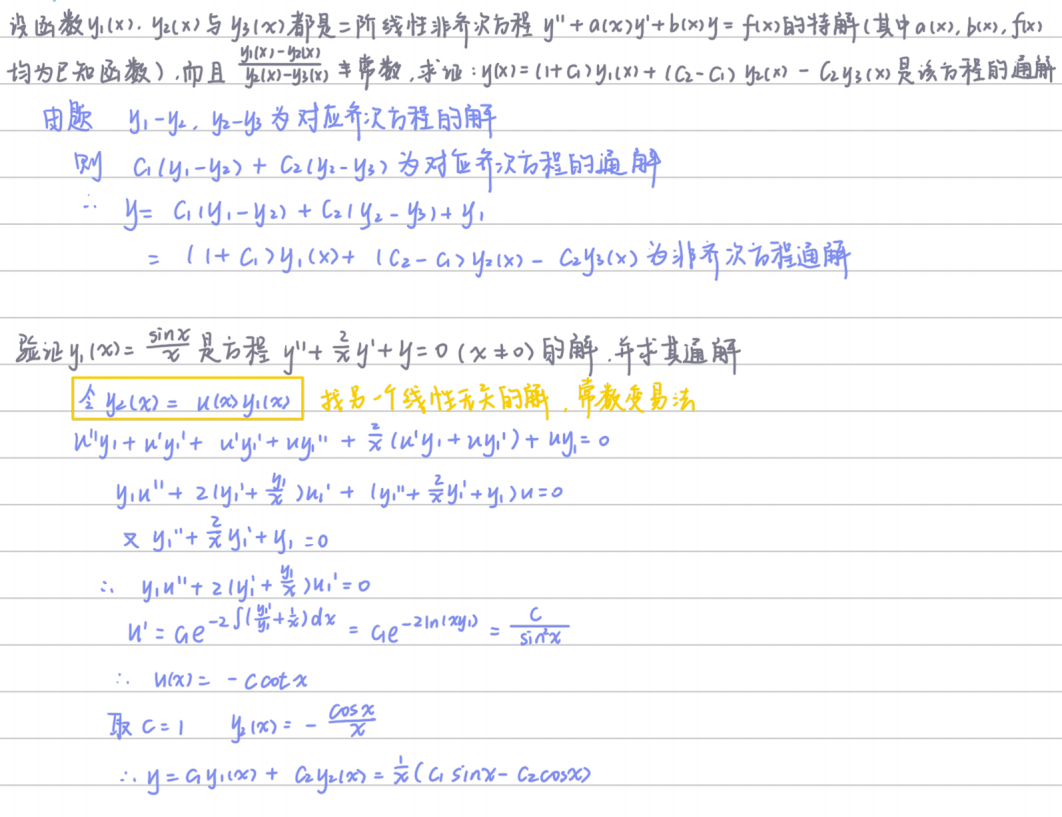 设函数y₁(x).y₂(x)与y₃(x)都是二阶线性非齐次方程 y''+a(x)y'+b(x)y=f(x)的特解(其中a(x),b(x),f(x)
均为已知函数),而且 (y₁(x)-y₂(x))/(y₂(x)-y₃(x)) ≢常数,求证:y(x)=(1+C₁)y₁(x)+(C₂-C₁)y₂(x)-C₂y₃(x)是该方程的通解
由题 y₁-y₂, y₂-y₃为对应齐次方程的解
则 C₁(y₁-y₂)+C₂(y₂-y₃)为对应齐次方程的通解
∴ y= C₁(y₁-y₂)+C₂(y₂-y₃)+y₁
= (1+C₁)y₁(x)+(C₂-C₁)y₂(x)-C₂y₃(x)为非齐次方程通解
验证y₁(x)=sinx/x 是方程 y''+2/x y'+y=0 (x≠0)的解.并求其通解
令 y₂(x)= u(x)y₁(x) 找另一个线性无关的解,常数变易法
u''y₁+u'y₁'+ u'y₁'+uy₁''+2/x(u'y₁+uy₁')+uy₁=0
y₁u''+2(y₁'+y₁/x)u₁'+(y₁''+2/x y₁'+y₁)u=0
又 y₁''+2/x y₁'+y₁=0
∴ y₁u''+2(y₁'+y₁/x)u₁'=0
u'=C₁e^(-2∫(y₁'/y₁+1/x)dx) = C₁e^(-2ln(xy₁)) = C/sin²x
∴ u(x)= -Ccotx
取C=1 y₂(x)= -cosx/x
∴y=C₁y₁(x)+C₂y₂(x)=1/x(C₁sinx-C₂cosx)